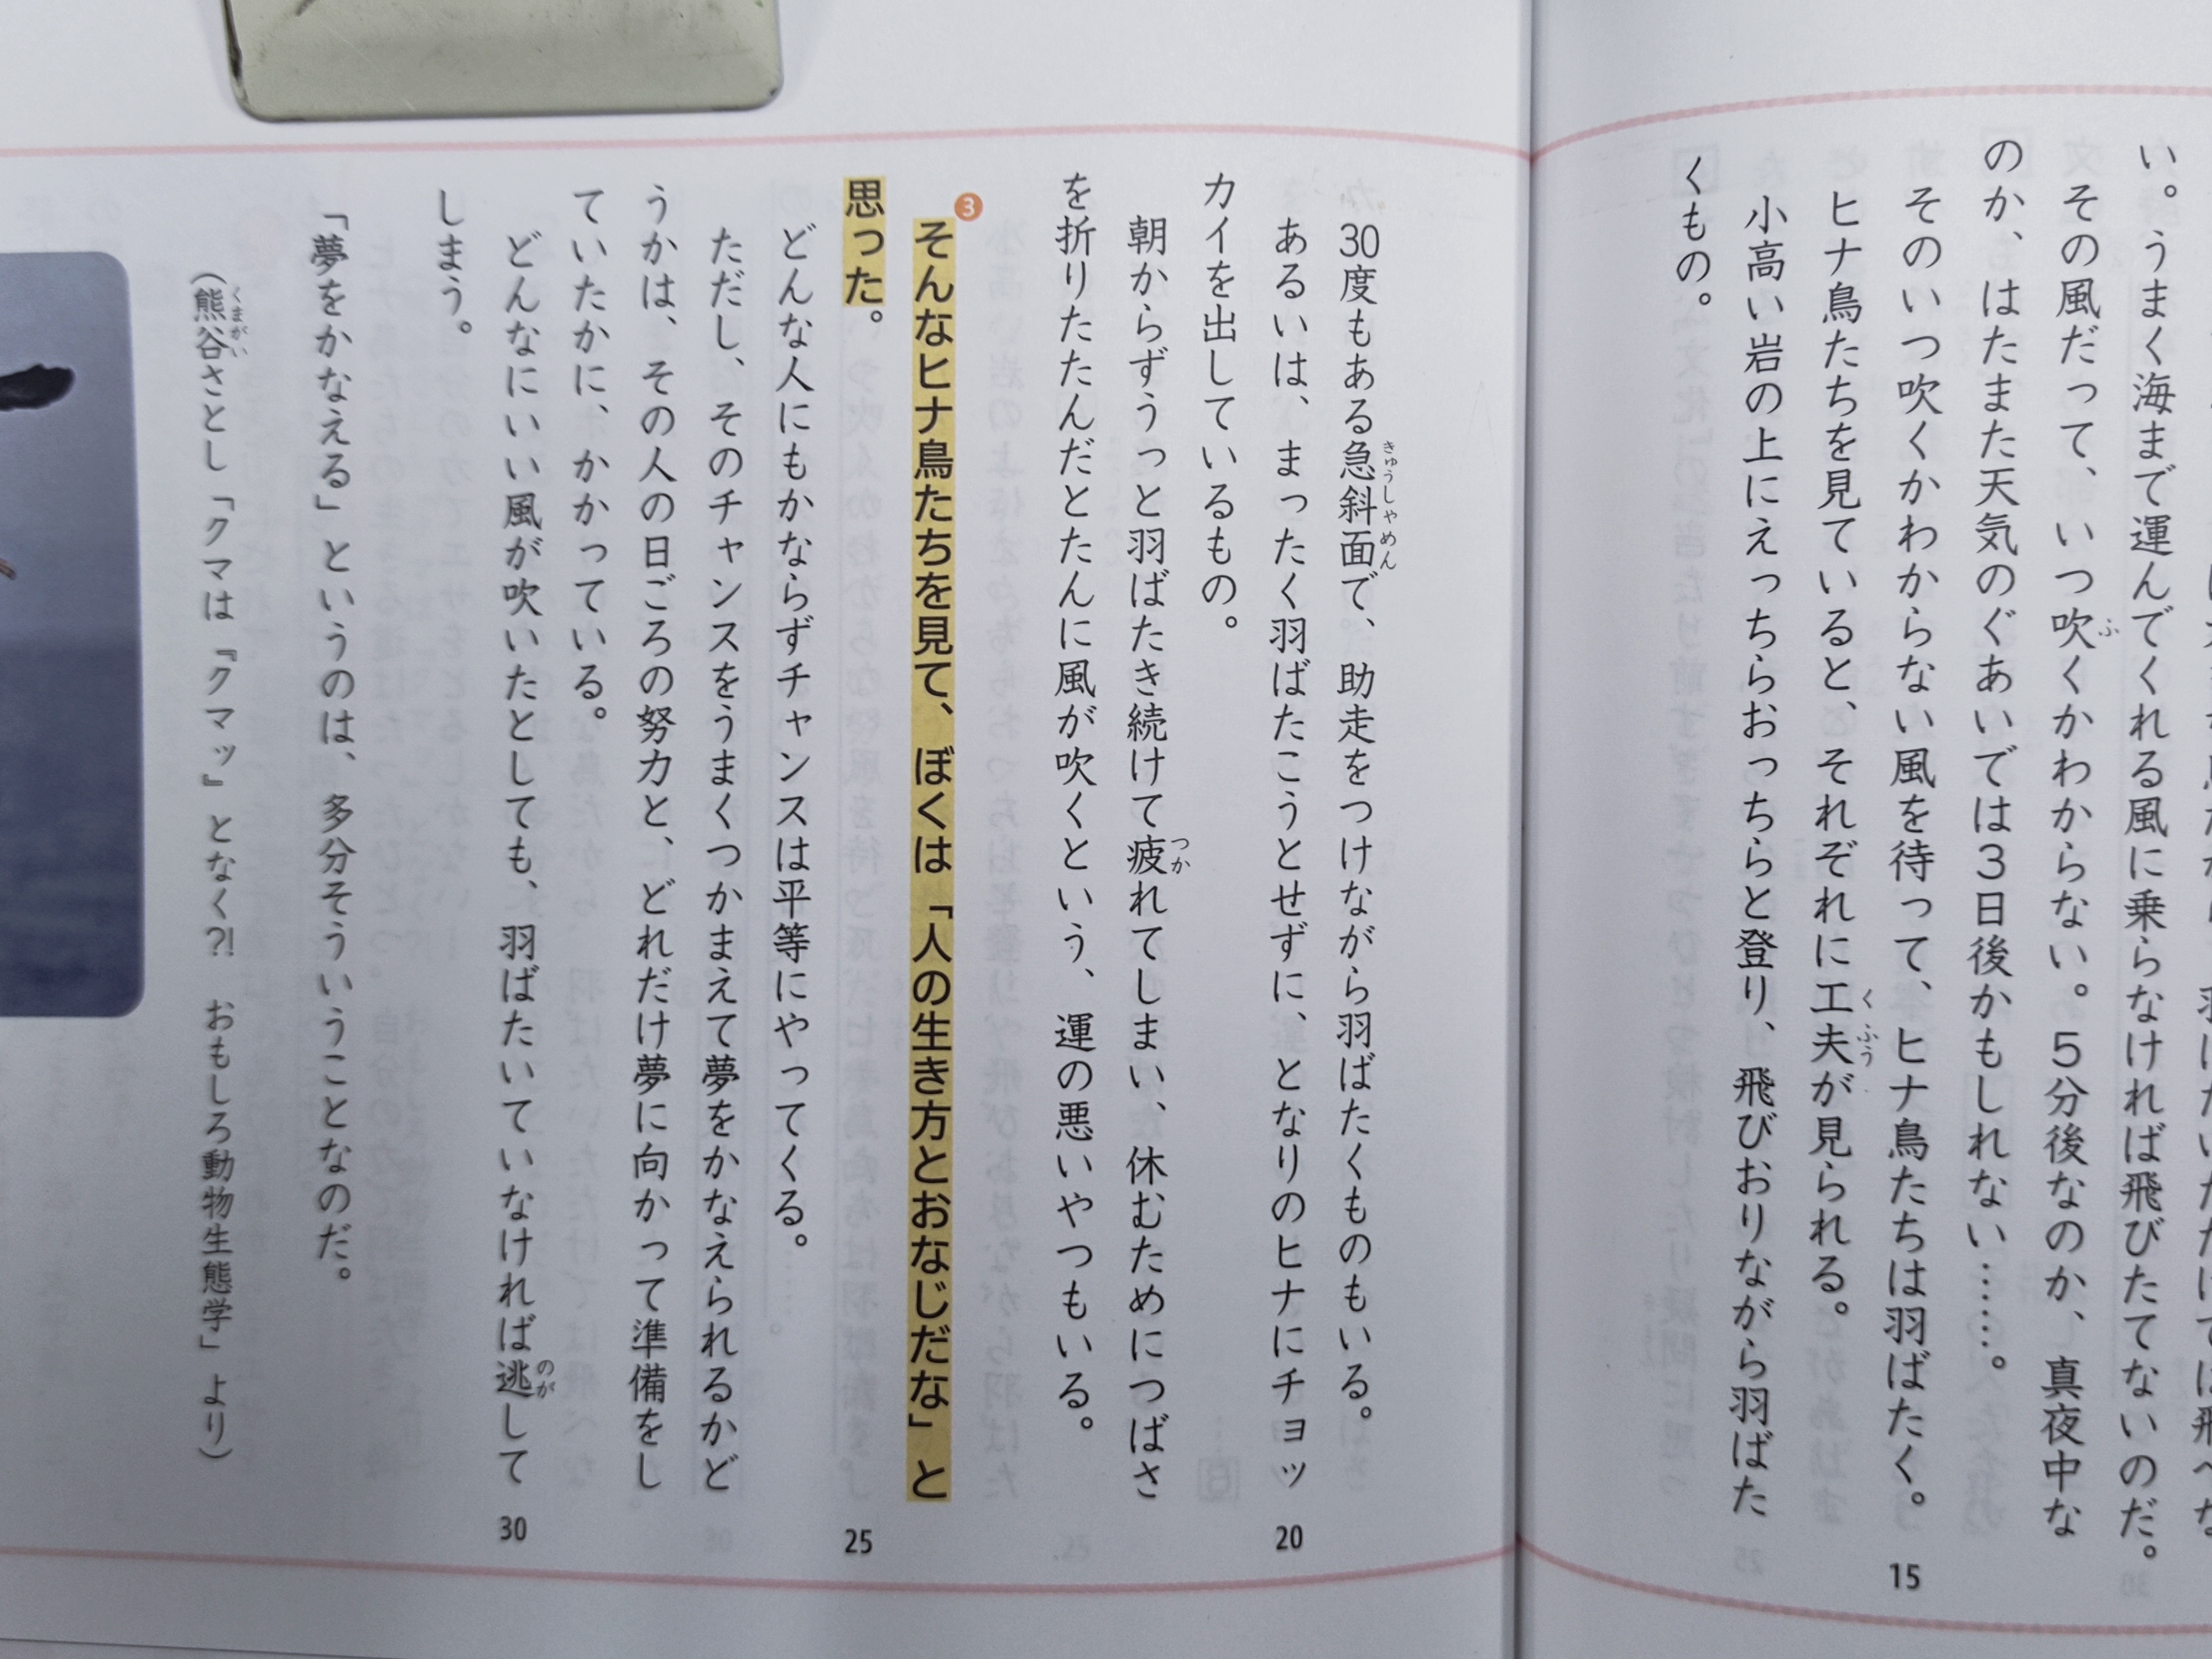 い。うまく海まで運んでくれる風に乗らなければ飛びたてないのだ。
その風だって、いつ吹くかわからない。5分後なのか、真夜中な
のか、はたまた天気のぐあいでは3日後かもしれない……。
そのいつ吹くかわからない風を待って、ヒナ鳥たちは羽ばたく。
ヒナ鳥たちを見ていると、それぞれに工夫が見られる。
小高い岩の上にえっちらおっちらと登り、飛びおりながら羽ばた
くもの。
30度もある急斜面で、助走をつけながら羽ばたくものもいる。
あるいは、まったく羽ばたこうとせずに、となりのヒナにチョッ
カイを出しているもの。
朝からずうっと羽ばたき続けて疲れてしまい、休むためにつばさ
を折りたたんだとたんに風が吹くという、運の悪いやつもいる。
❸そんなヒナ鳥たちを見て、ぼくは「人の生き方とおなじだな」と
思った。
どんな人にもかならずチャンスは平等にやってくる。
ただし、そのチャンスをうまくつかまえて夢をかなえられるかど
うかは、その人の日ごろの努力と、どれだけ夢に向かって準備をし
ていたかに、かかっている。
どんなにいい風が吹いたとしても、羽ばたいていなければ逃して
しまう。
「夢をかなえる」というのは、多分そういうことなのだ。
（熊谷さとし「クマは『クマッ』となく?! おもしろ動物生態学」より）
ふ
くふう
きゅうしゃめん
つか
のが
くまがい
15
20
25
30